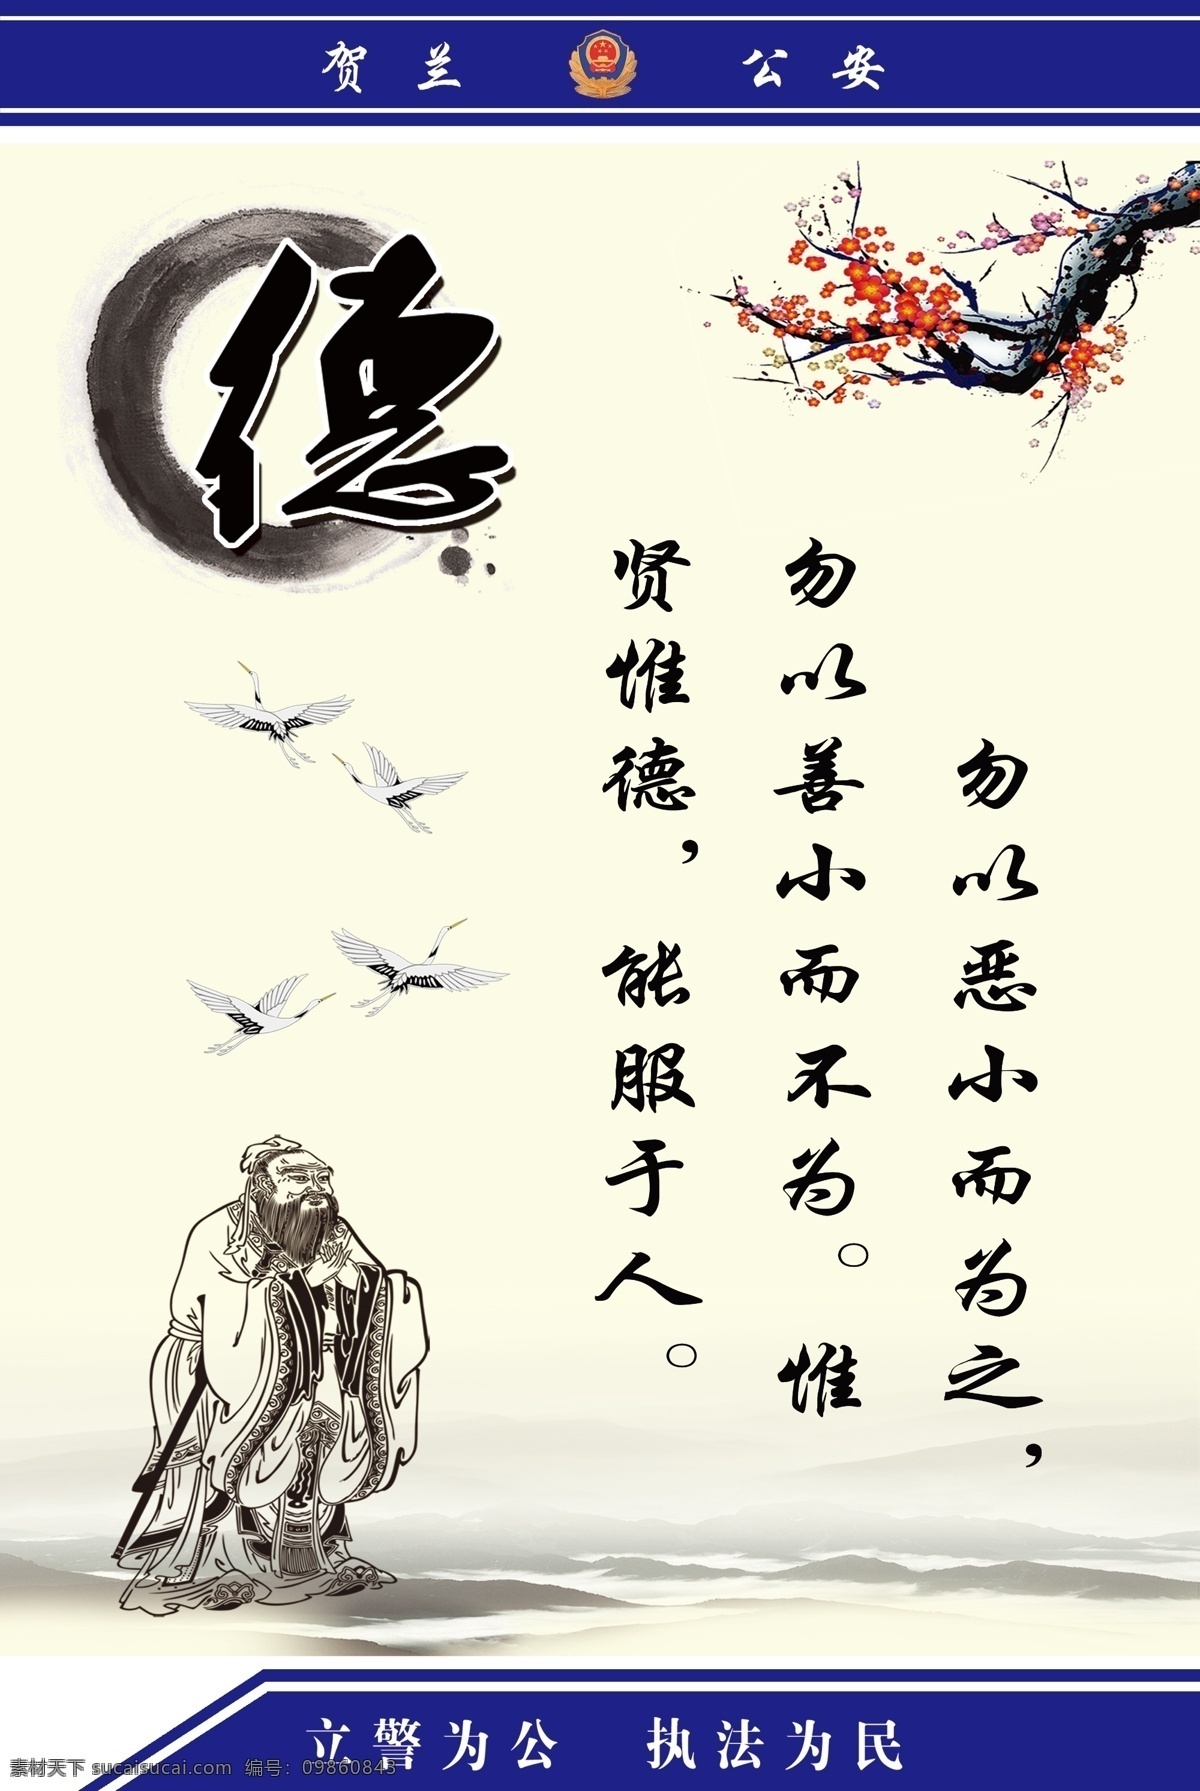 贺兰 公安
德
勿以恶小而为之，
勿以善小而不为。惟
贤惟德，能服于人。
立警为公 执法为民
素材天下 sucaisucai.com 编号：09860843